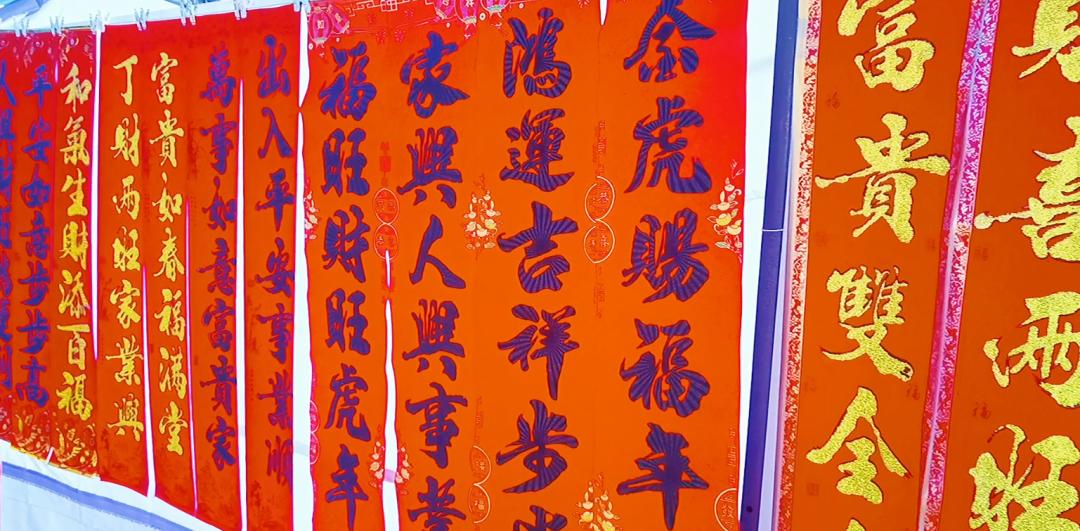 喜兩旺
富貴雙全
虎賜福年
鴻運吉祥步
家興人興事業
福旺財旺虎年
出入平安事業順
萬事如意富貴家
富貴如春福滿堂
丁財兩旺家業興
和氣生財添百福
平安如意步步高
人興財